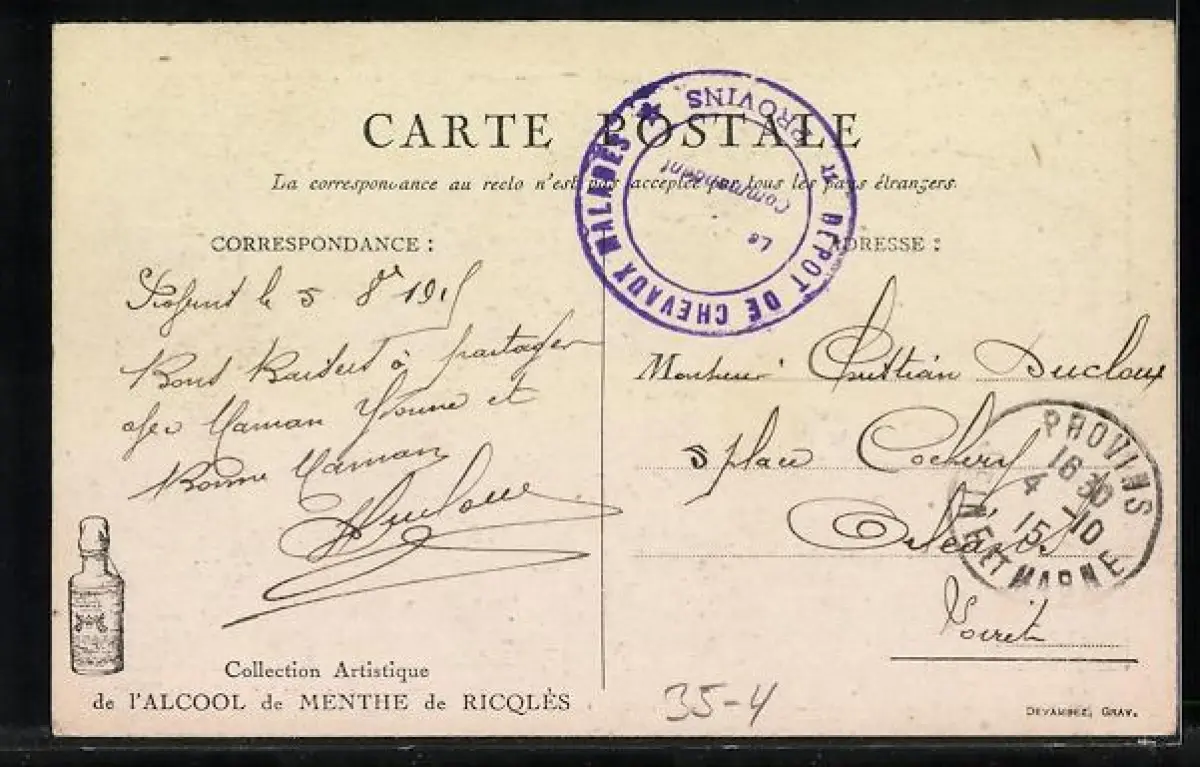 CARTE POSTALE
La correspondance au recto n'est pas acceptée par tous les pays étrangers.
★ PROVINS ★ DÉPOT DE CHEVAUX MALADES
Le Commandant
CORRESPONDANCE :
ADRESSE :
le 5 8re 1915
Bons Baisers à partager
avec Maman Yvonne et
Bonne Maman
Ducloux
Monsieur Ducloux
5 place Cochery
Orléans
Loiret
PROVINS
16 30
4 -10
15
NE ET MARNE
Collection Artistique
de l'ALCOOL de MENTHE de RICQLÈS
35-4
DEVAMBEZ, GRAV.